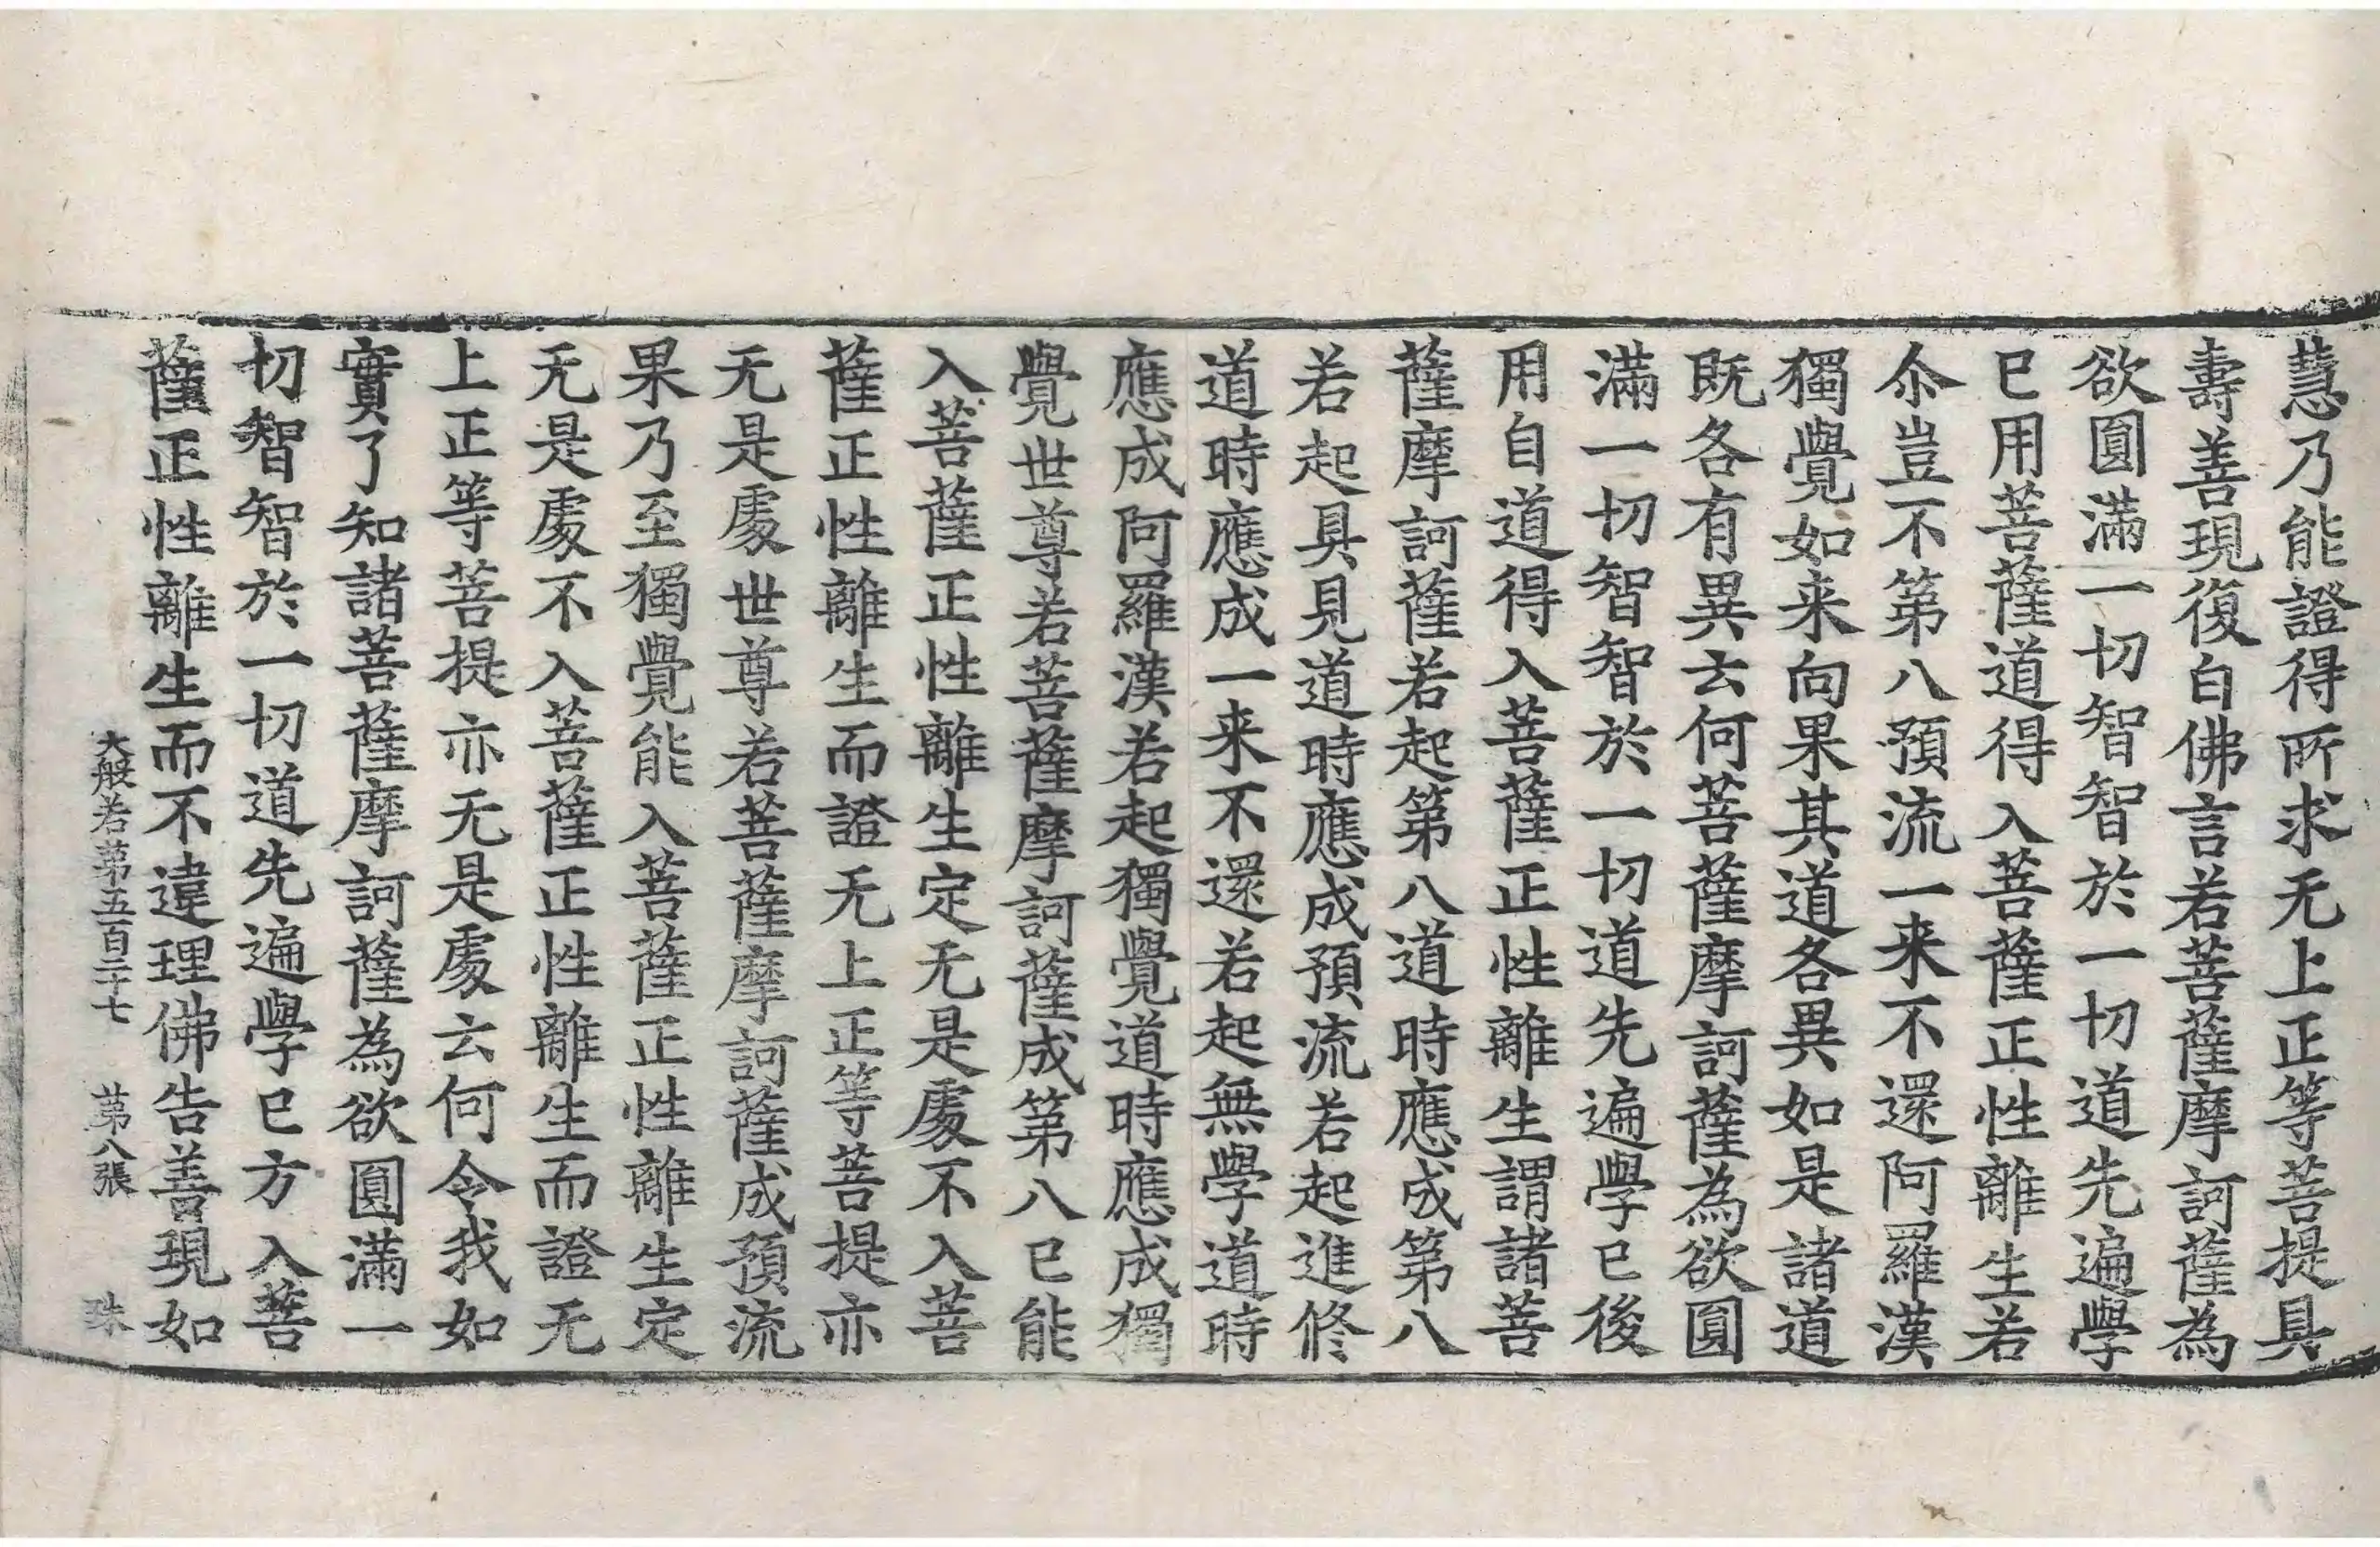 慧乃能證得所求无上正等菩提具
壽善現復白佛言若菩薩摩訶薩為
欲圓滿一切智智於一切道先遍學
已用菩薩道得入菩薩正性離生若
尒豈不第八預流一来不還阿羅漢
獨覺如来向果其道各異如是諸道
既各有異云何菩薩摩訶薩為欲圓
滿一切智智於一切道先遍學已後
用自道得入菩薩正性離生謂諸菩
薩摩訶薩若起第八道時應成第八
若起具見道時應成預流若起進修
道時應成一来不還若起無學道時
應成阿羅漢若起獨覺道時應成獨
覺世尊若菩薩摩訶薩成第八已能
入菩薩正性離生定无是處不入菩
薩正性離生而證无上正等菩提亦
无是處世尊若菩薩摩訶薩成預流
果乃至獨覺能入菩薩正性離生定
无是處不入菩薩正性離生而證无
上正等菩提亦无是處云何令我如
實了知諸菩薩摩訶薩為欲圓滿一
切智智於一切道先遍學已方入菩
薩正性離生而不違理佛告善現如
大般若第五百二十七 第八張 珠